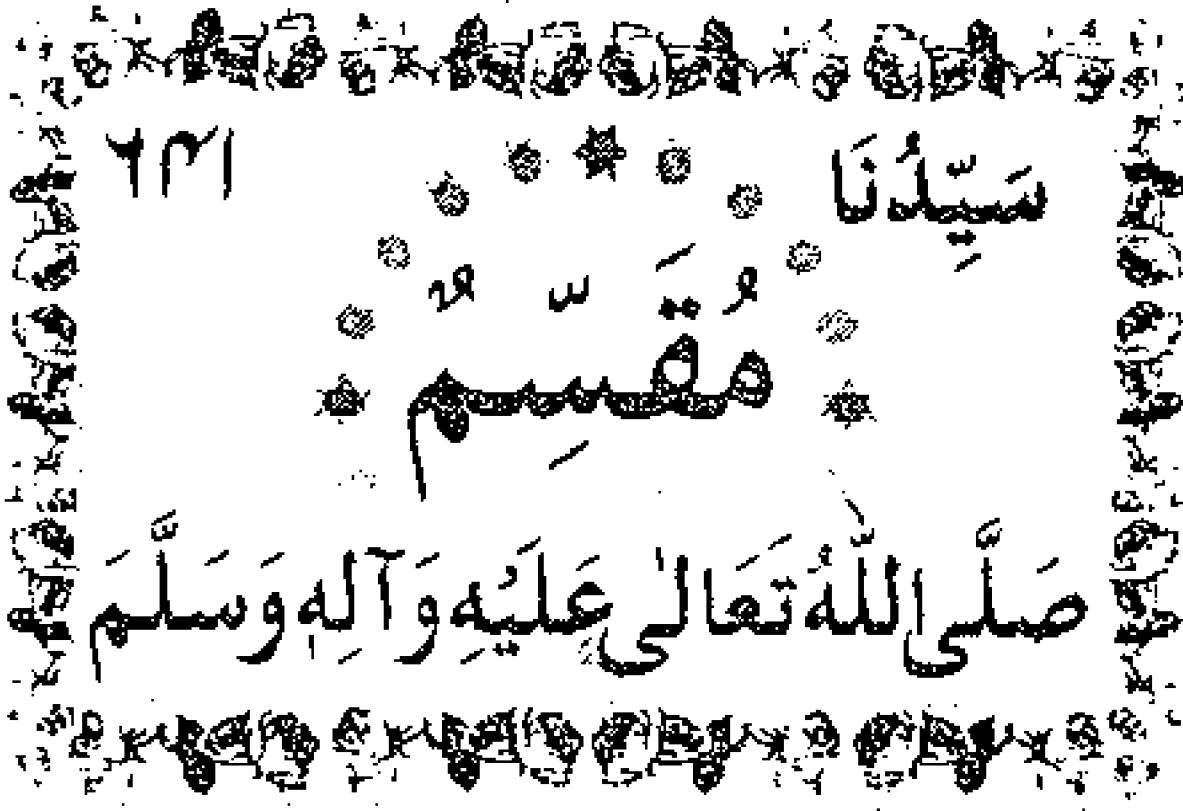 سَيِّدُنَا ٦٣١
مُقَسِّمٌ
صَلَّى اللّٰهُ تَعَالٰى عَلَيْهِ وَآلِهٖ وَسَلَّمَ